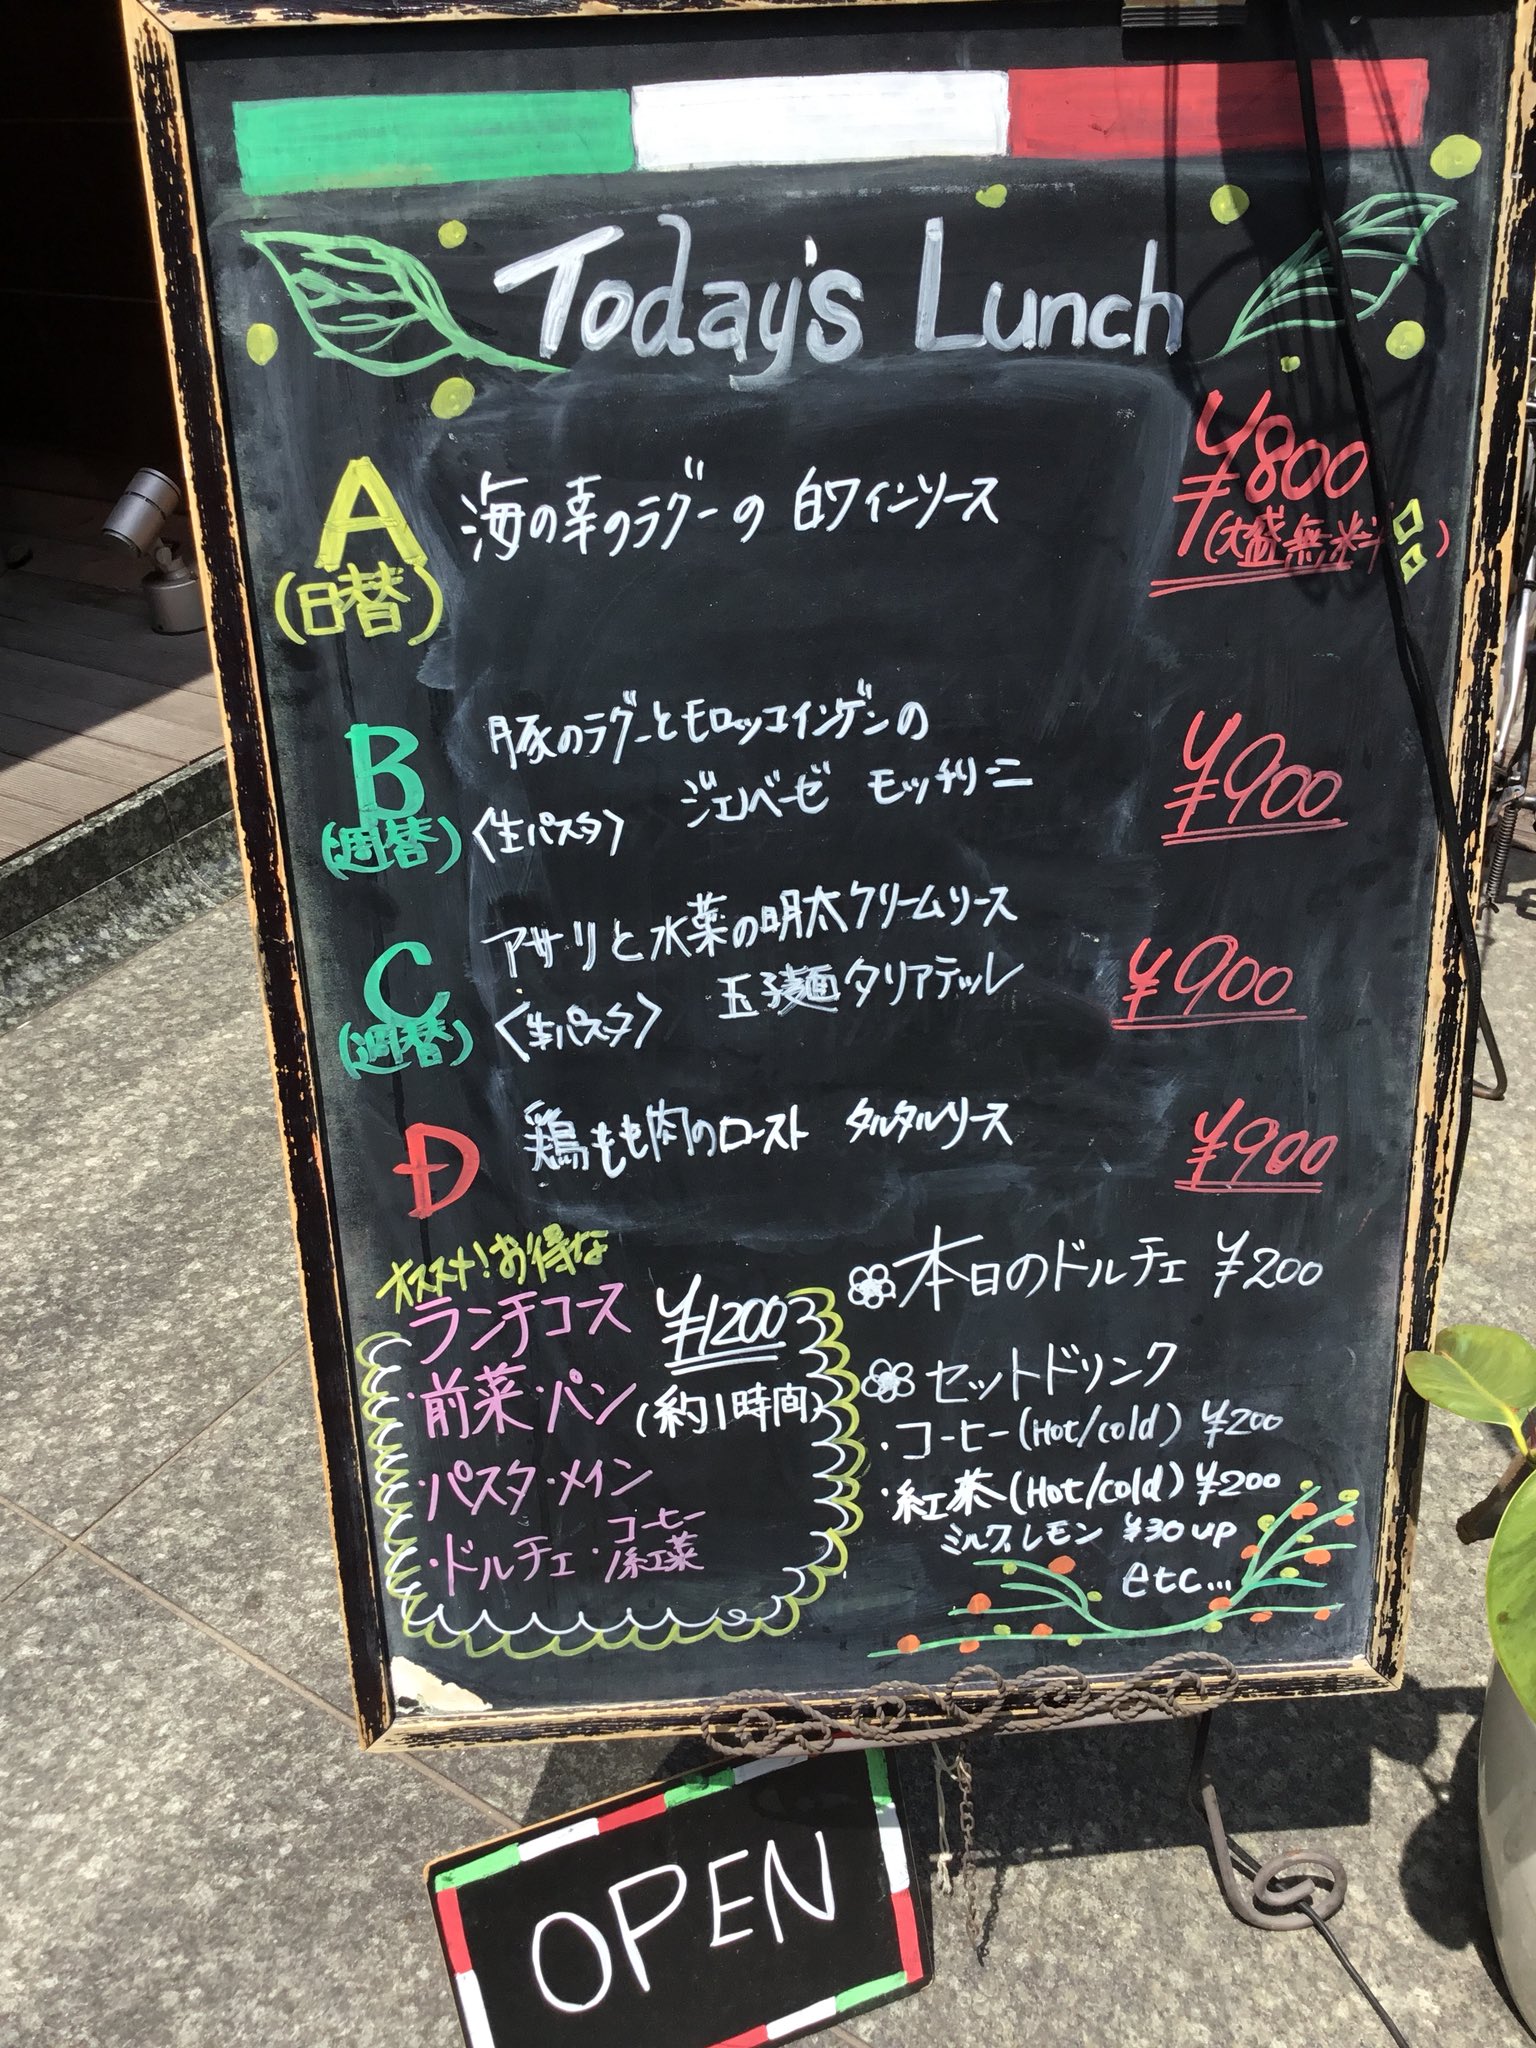 Today's Lunch
A
(日替)
海の幸のラグーの 白ワインソース
¥800
(大盛無料)
B
(週替)
豚のラグーとモロッコインゲンの
<生パスタ> ジェノベーゼ モッチリーニ
¥900
C
(週替)
アサリと水菜の明太クリームソース
<生パスタ> 玉子麺タリアテッレ
¥900
D
鶏もも肉のロースト タルタルソース
¥900
オススメ!お得な
ランチコース ¥1200
・前菜・パン (約1時間)
・パスタ・メイン
・ドルチェ・コーヒー/紅茶
本日のドルチェ ¥200
セットドリンク
・コーヒー(Hot/cold) ¥200
・紅茶(Hot/cold) ¥200
ミルク、レモン ¥30 up
etc...
OPEN